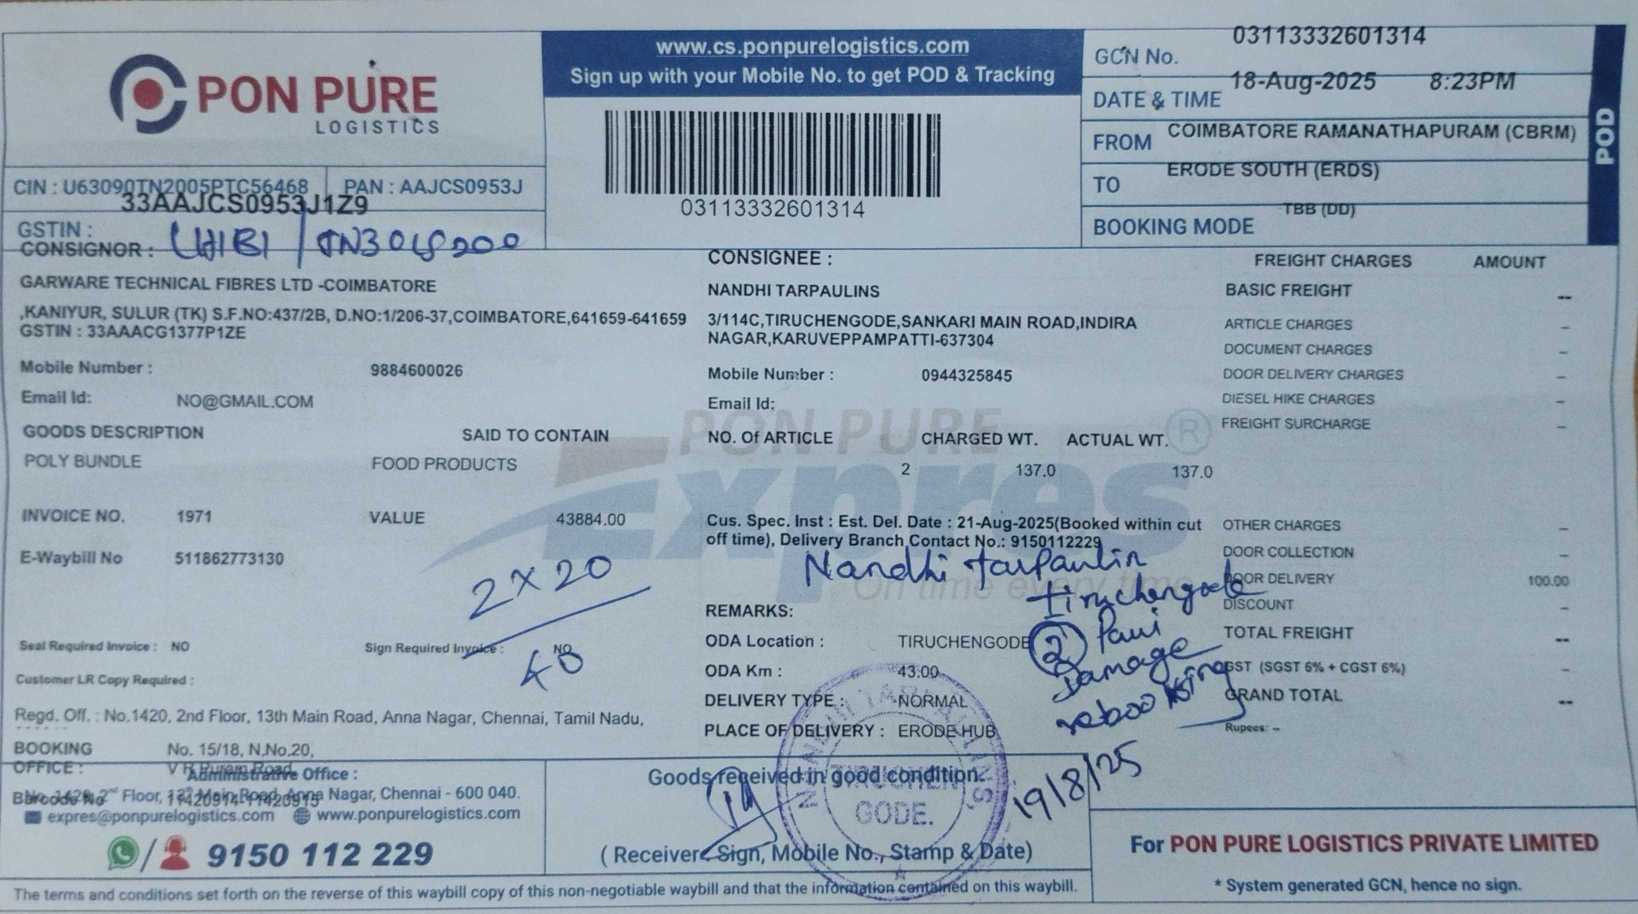 PON PURE
LOGISTICS
www.cs.ponpurelogistics.com
Sign up with your Mobile No. to get POD & Tracking
03113332601314
GCN No. 03113332601314
DATE & TIME 18-Aug-2025 8:23PM
FROM COIMBATORE RAMANATHAPURAM (CBRM)
TO ERODE SOUTH (ERDS)
BOOKING MODE TBB (DD)
POD
CIN : U63090TN2005PTC56468 PAN : AAJCS0953J
33AAJCS0953J1Z9
GSTIN :
CONSIGNOR :
GARWARE TECHNICAL FIBRES LTD -COIMBATORE
,KANIYUR, SULUR (TK) S.F.NO:437/2B, D.NO:1/206-37,COIMBATORE,641659-641659
GSTIN : 33AAACG1377P1ZE
Mobile Number : 9884600026
Email Id: NO@GMAIL.COM
GOODS DESCRIPTION SAID TO CONTAIN
POLY BUNDLE FOOD PRODUCTS
INVOICE NO. 1971 VALUE 43884.00
E-Waybill No 511862773130
2 x 20
40
Seal Required Invoice : NO Sign Required Invoice : NO
Customer LR Copy Required :
Regd. Off. : No.1420, 2nd Floor, 13th Main Road, Anna Nagar, Chennai, Tamil Nadu,
CONSIGNEE :
NANDHI TARPAULINS
3/114C,TIRUCHENGODE,SANKARI MAIN ROAD,INDIRA
NAGAR,KARUVEPPAMPATTI-637304
Mobile Number : 0944325845
Email Id:
PON PURE
Expres
On time every time
NO. Of ARTICLE CHARGED WT. ACTUAL WT.
2 137.0 137.0
Cus. Spec. Inst : Est. Del. Date : 21-Aug-2025(Booked within cut
off time), Delivery Branch Contact No.: 9150112229
Nandhi tarpaulin
tiruchengode
2
Damage
REMARKS:
ODA Location : TIRUCHENGODE
ODA Km : 43.00
DELIVERY TYPE : NORMAL
PLACE OF DELIVERY : ERODE HUB
FREIGHT CHARGES AMOUNT
BASIC FREIGHT --
ARTICLE CHARGES -
DOCUMENT CHARGES -
DOOR DELIVERY CHARGES -
DIESEL HIKE CHARGES -
FREIGHT SURCHARGE -
OTHER CHARGES -
DOOR COLLECTION -
DOOR DELIVERY 100.00
DISCOUNT -
TOTAL FREIGHT --
GST (SGST 6% + CGST 6%) -
GRAND TOTAL --
Rupees: --
BOOKING No. 15/18, N.No.20,
OFFICE :
Administrative Office :
Barcode No
Floor, 13th Main Road, Anna Nagar, Chennai - 600 040.
expres@ponpurelogistics.com www.ponpurelogistics.com
9150 112 229
Goods received in good condition.
NANDHI TARPAULINS,
TIRUCHEN
GODE.
19/8/25
( Receiver Sign, Mobile No., Stamp & Date)
For PON PURE LOGISTICS PRIVATE LIMITED
* System generated GCN, hence no sign.
The terms and conditions set forth on the reverse of this waybill copy of this non-negotiable waybill and that the information contained on this waybill.